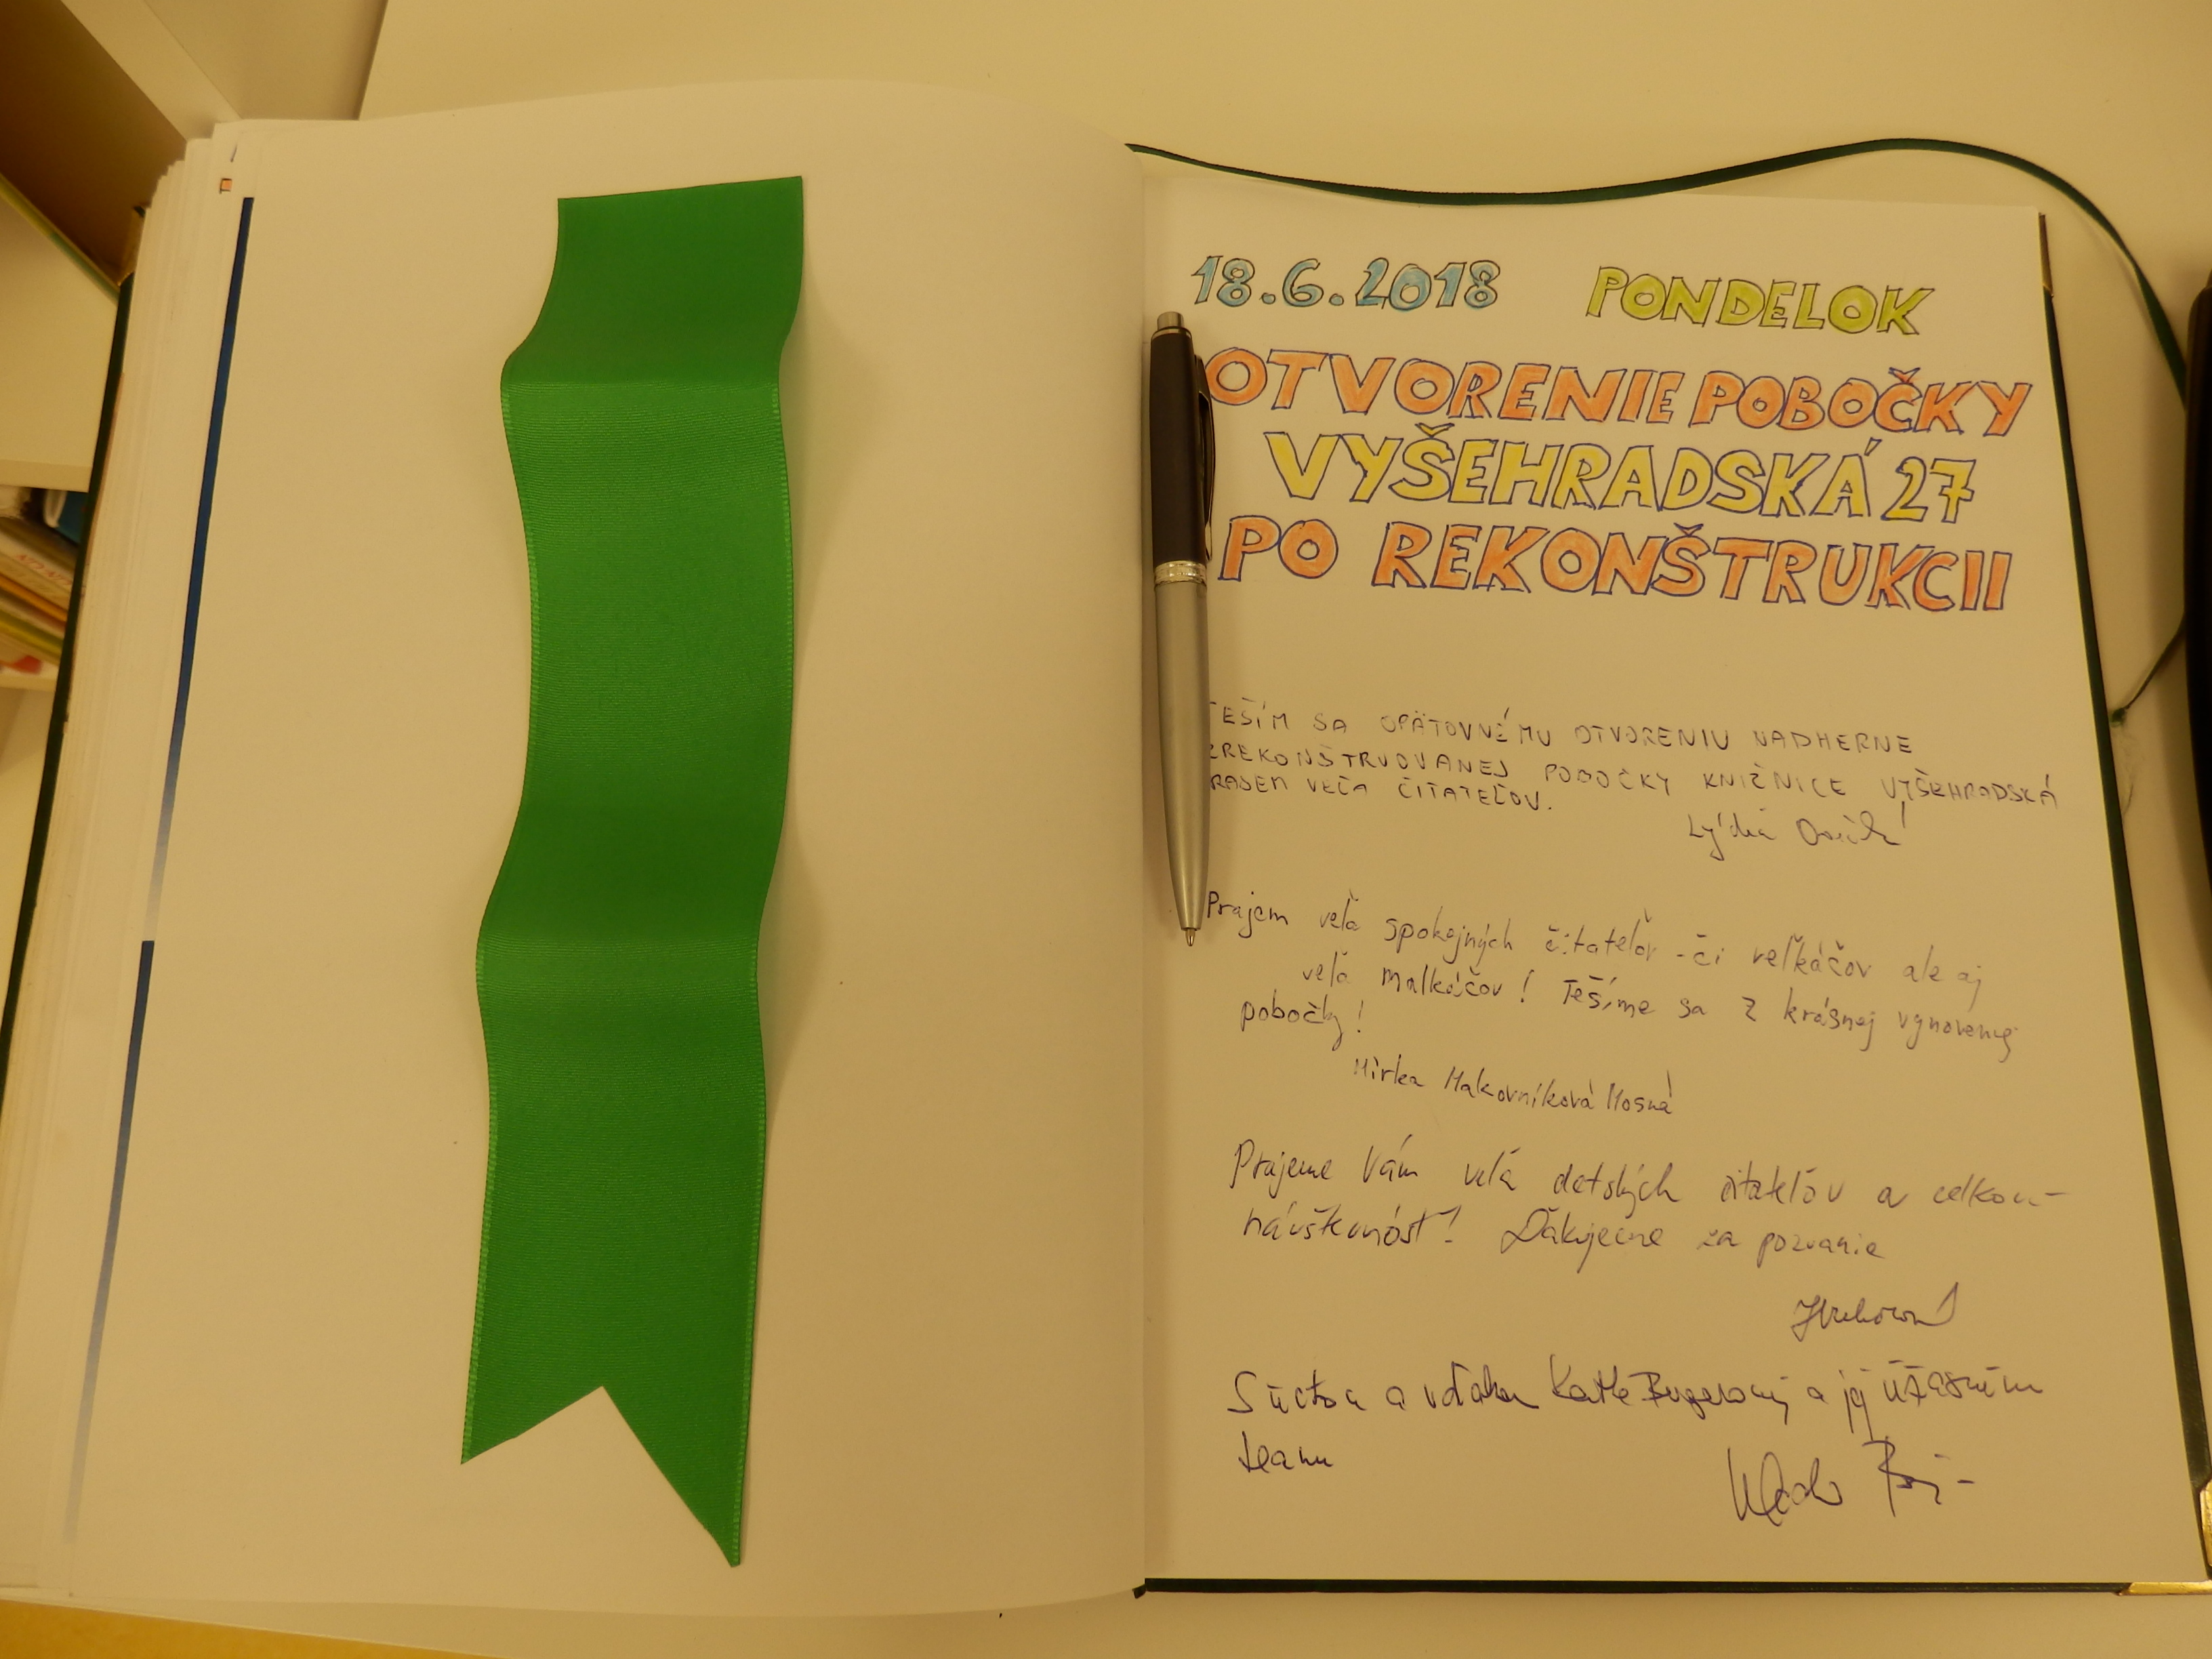 18.6.2018 PONDELOK
OTVORENIE POBOČKY
VYŠEHRADSKÁ 27
PO REKONŠTRUKCII
TEŠÍM SA OPÄTOVNÉMU OTVORENIU NADHERNE
ZREKONŠTRUOVANEJ POBOČKY KNIŽNICE VYŠEHRADSKÁ
VEĽA ČITATEĽOV.
Lýdia
Prajem veľa spokojných čitateľov - či veľkáčov ale aj
veľa malkáčov! Tešíme sa z krásnej vynovenej
pobočky!
Mirka Makovníková Mosná
Prajeme Vám veľa detských čitateľov a celkovú
návštevnosť! Ďakujeme za pozvanie
a vďaka a jej úžasným
teamu